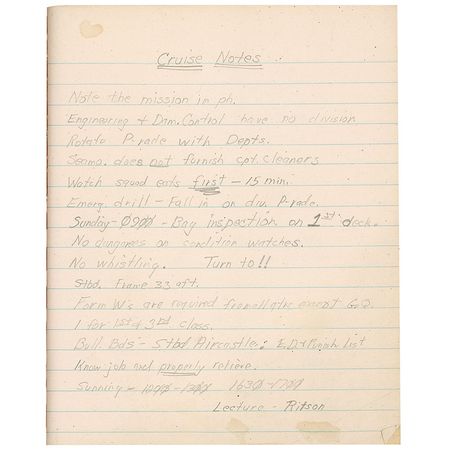 Cruise Notes
Note the mission in ph.
Engineering & Dam. Control have no division
Rotate P-rade with Depts.
Seamo. does not furnish cpt. cleaners
Watch squad eats first - 15 min.
Emerg. drill - Fall in on div. P-rade.
Sunday - 0900 - Bag inspection on 1st deck.
No dungarees on condition watches.
No whistling. Turn to!!
Stbd. Frame 33 aft.
Form W's are required from all hts except G.Q.
1 for 1st & 3rd class.
Bull. Bds - Stbd. Aircastle: E.D. & Punish. List
Know job and properly relieve.
Sunning - 1200 - 1300 1630 - 1700
Lecture - Ritson